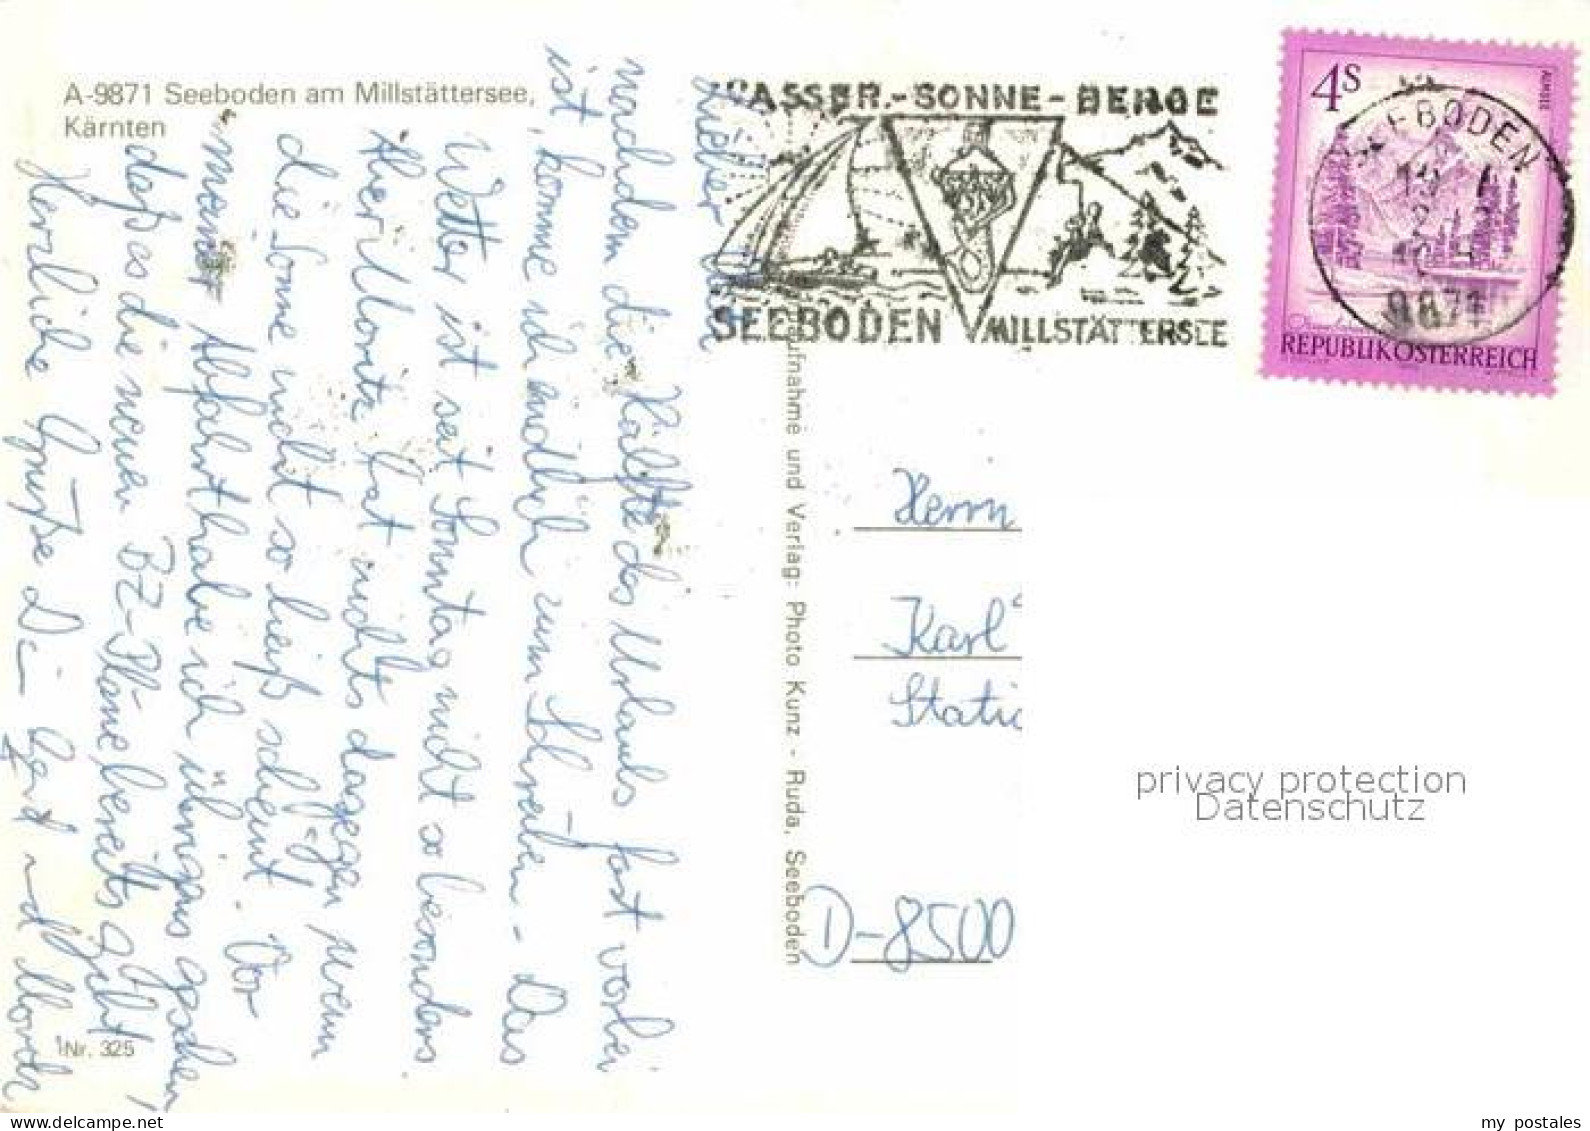 A-9871 Seeboden am Millstättersee,
Kärnten
WASSER-SONNE-BERGE
SEEBODEN MILLSTÄTTERSEE
4S
ALMSEE
REPUBLIK ÖSTERREICH
SEEBODEN
9871
Lieber
nachdem die Hälfte des Urlaubs fast vorbei
ist, komme ich endlich zum Schreiben. Das
Wetter ist seit Sonntag nicht so besonders.
Aber Moritz hat nichts dagegen, wenn
die Sonne nicht so heiß scheint. Vor
meiner Abfahrt habe ich übrigens gesehen,
daß es die neuen BZ-Pläne bereits gibt!
Herzliche Grüße Dein Gerd und Moritz
Aufnahme und Verlag: Photo Kunz - Ruda, Seeboden
Nr. 325
Herrn
Karl
D-8500
privacy protection
Datenschutz
my postales